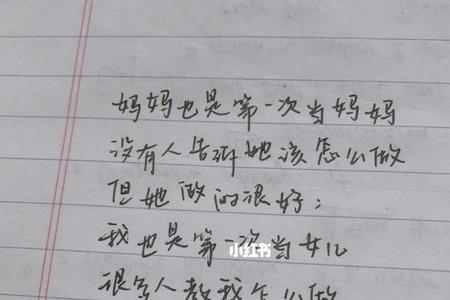 妈妈也是第一次当妈妈
没有人告诉她该怎么做
但她做的很好；
我也是第一次当女儿
小红书
很多人教我怎么做